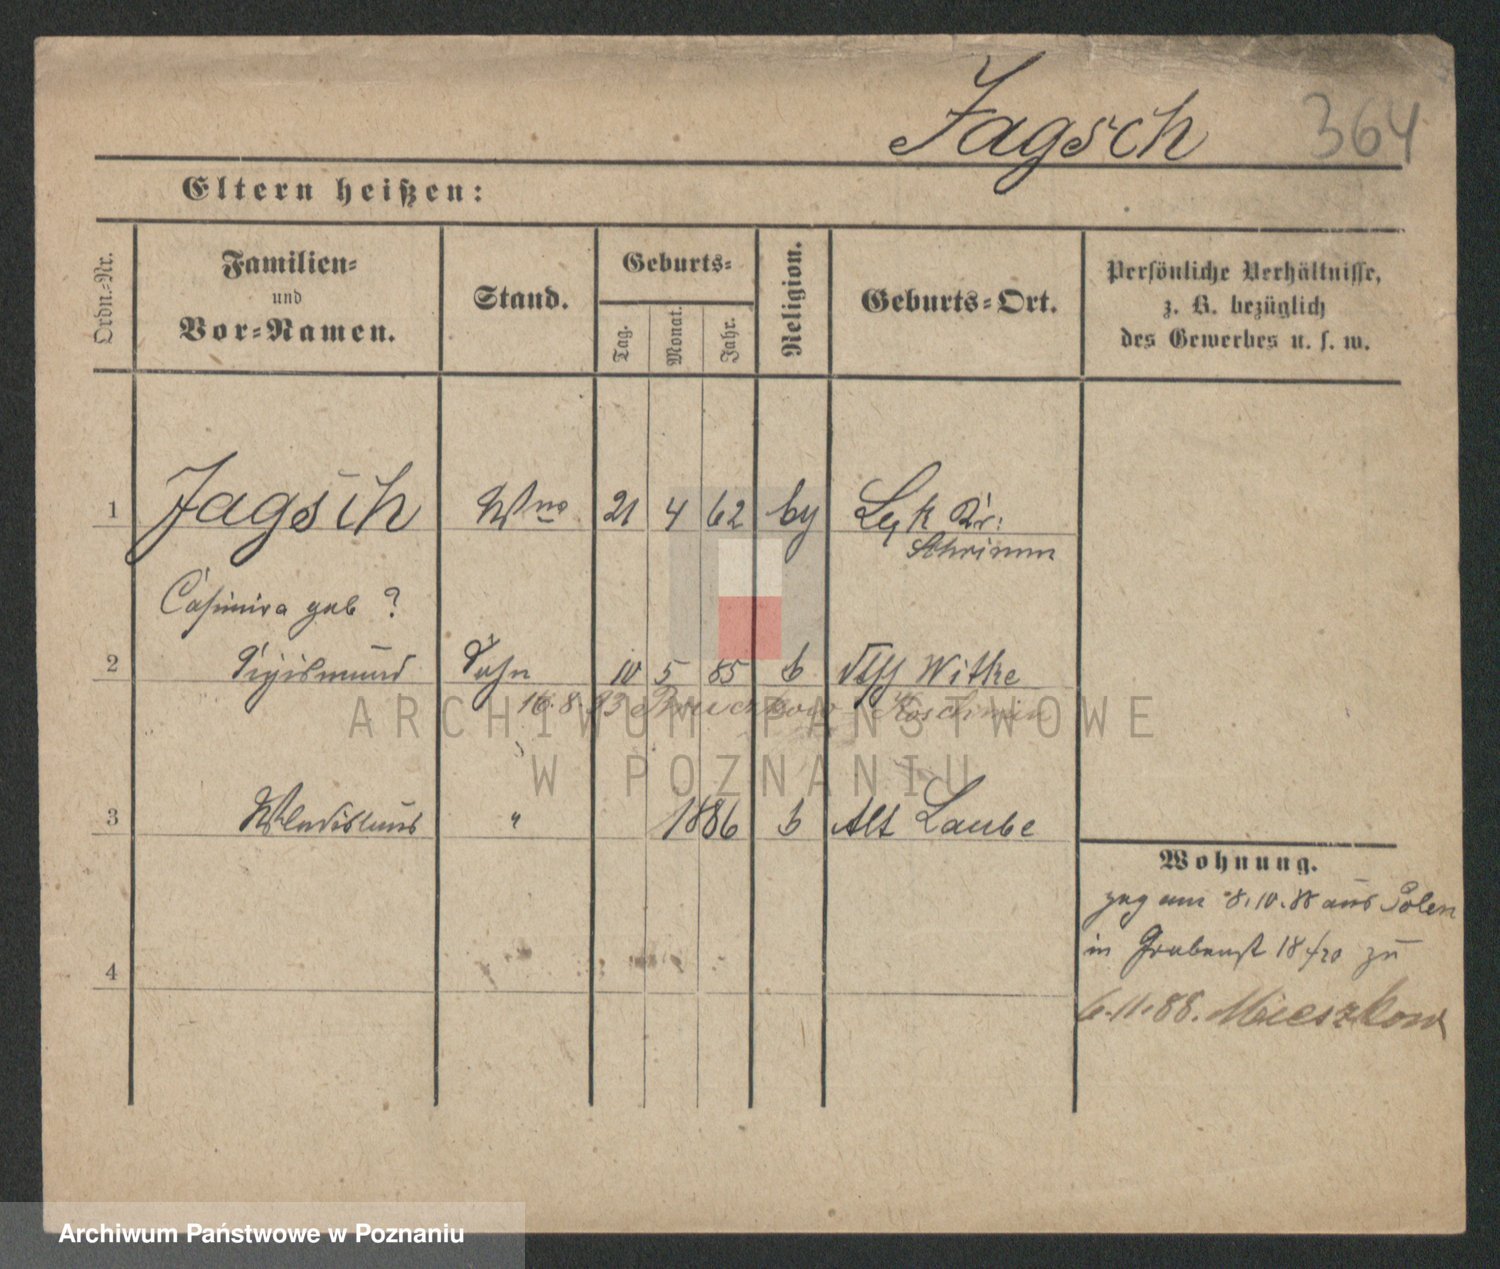 Jagsch 364
Eltern heißen:
Ordn.-Nr.
Familien-
und
Vor-Namen.
Stand.
Geburts-
Tag.
Monat.
Jahr.
Religion.
Geburts-Ort.
Persönliche Verhältnisse,
z. B. bezüglich
des Gewerbes u. s. w.
1 Jagsch Wwe 21 4 62 Kr:
Schrimm
Casimira geb ?
2 Sigismund Sohn 10 5 85 Witke
16.8.93 Koschmin
3 Wladislaus " 1886 Alt Laube
Wohnung.
zug am 8.10.88 aus Polen
in Grabenst 18 zu
6.11.88. Mieszkow
4
ARCHIWUM PAŃSTWOWE
W POZNANIU
Archiwum Państwowe w Poznaniu